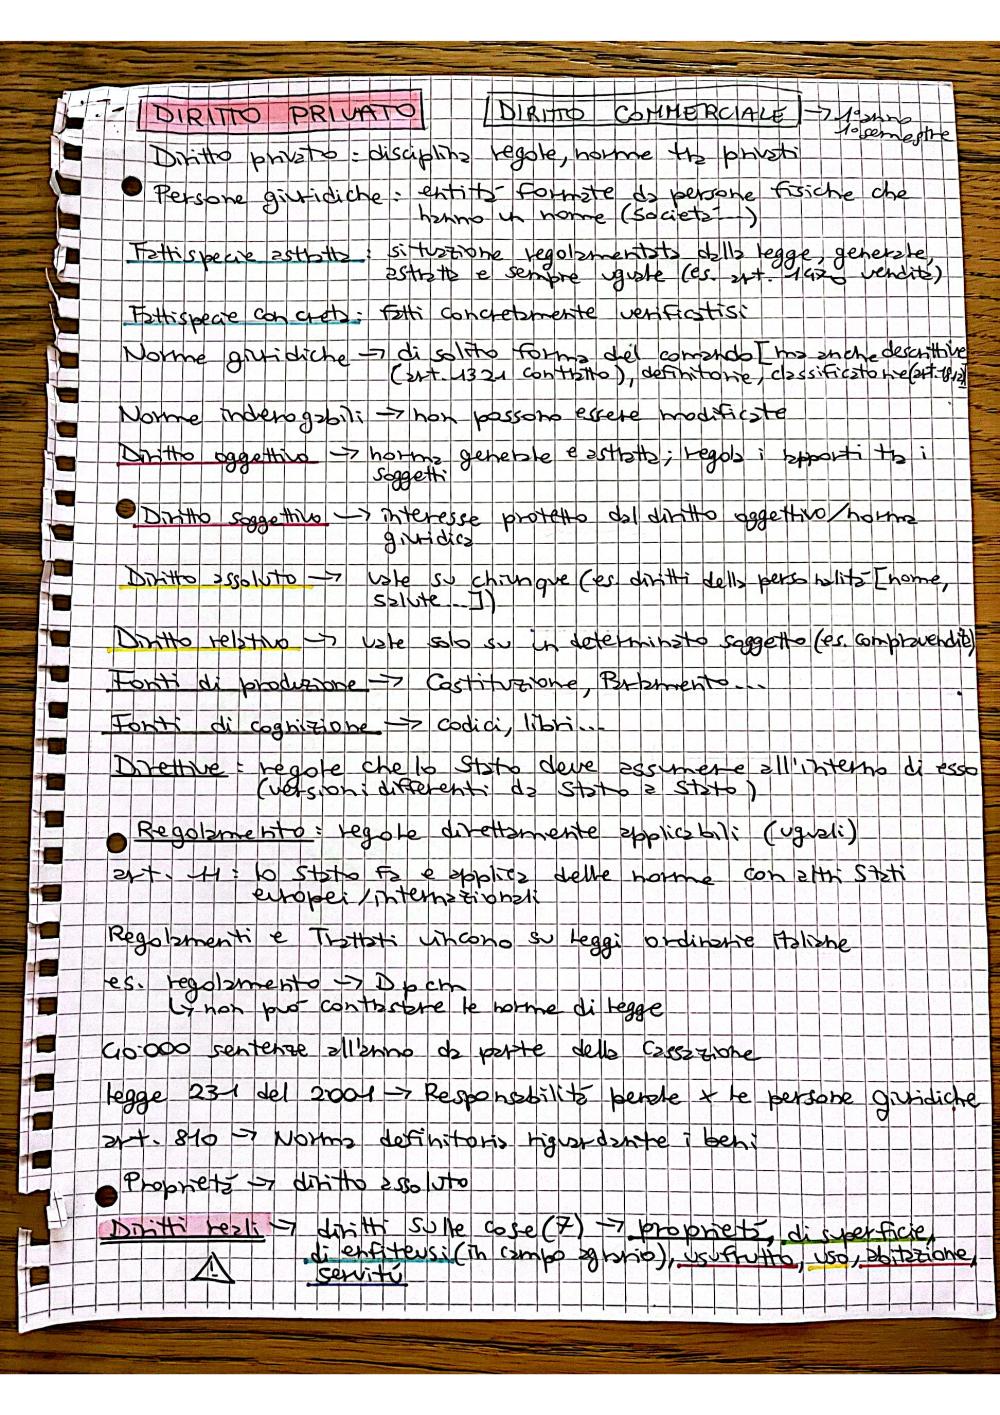 DIRITTO PRIVATO DIRITTO COMMERCIALE → 1° anno
1° semestre
Diritto privato : disciplina regole, norme tra privati
Persone giuridiche : entità formate da persone fisiche che
hanno un nome (società...)
Fattispecie astratta : situazione regolamentata dalla legge, generale,
astratta e sempre uguale (es. art. 1470 vendita)
Fattispecie concreta : fatti concretamente verificatisi
Norme giuridiche → di solito forma del comando [ma anche descrittive
(art. 1321 contratto), definitorie, classificatorie (art. 812)]
Norme inderogabili → non possono essere modificate
Diritto oggettivo → norma generale e astratta ; regola i rapporti tra i
soggetti
Diritto soggettivo → interesse protetto dal diritto oggettivo/norma
giuridica
Diritto assoluto → vale su chiunque (es. diritti della personalità [nome,
salute...])
Diritto relativo → vale solo su un determinato soggetto (es. compravendita)
Fonti di produzione → Costituzione, Parlamento...
Fonti di cognizione → codici, libri...
Direttive : regole che lo Stato deve assumere all'interno di esso
(versioni differenti da Stato a Stato)
Regolamento : regole direttamente applicabili (uguali)
art. 11 : lo Stato fa e applica delle norme con altri Stati
europei/internazionali
Regolamenti e Trattati vincono su leggi ordinarie italiane
es. regolamento → Dpcm
↳ non può contrastare le norme di legge
40.000 sentenze all'anno da parte della Cassazione
legge 231 del 2001 → Responsabilità penale x le persone giuridiche
art. 810 → Norma definitoria riguardante i beni
Proprietà → diritto assoluto
Diritti reali → diritti sulle cose (7) → proprietà, di superficie,
di enfiteusi (in campo agrario), usufrutto, uso, abitazione,
servitù